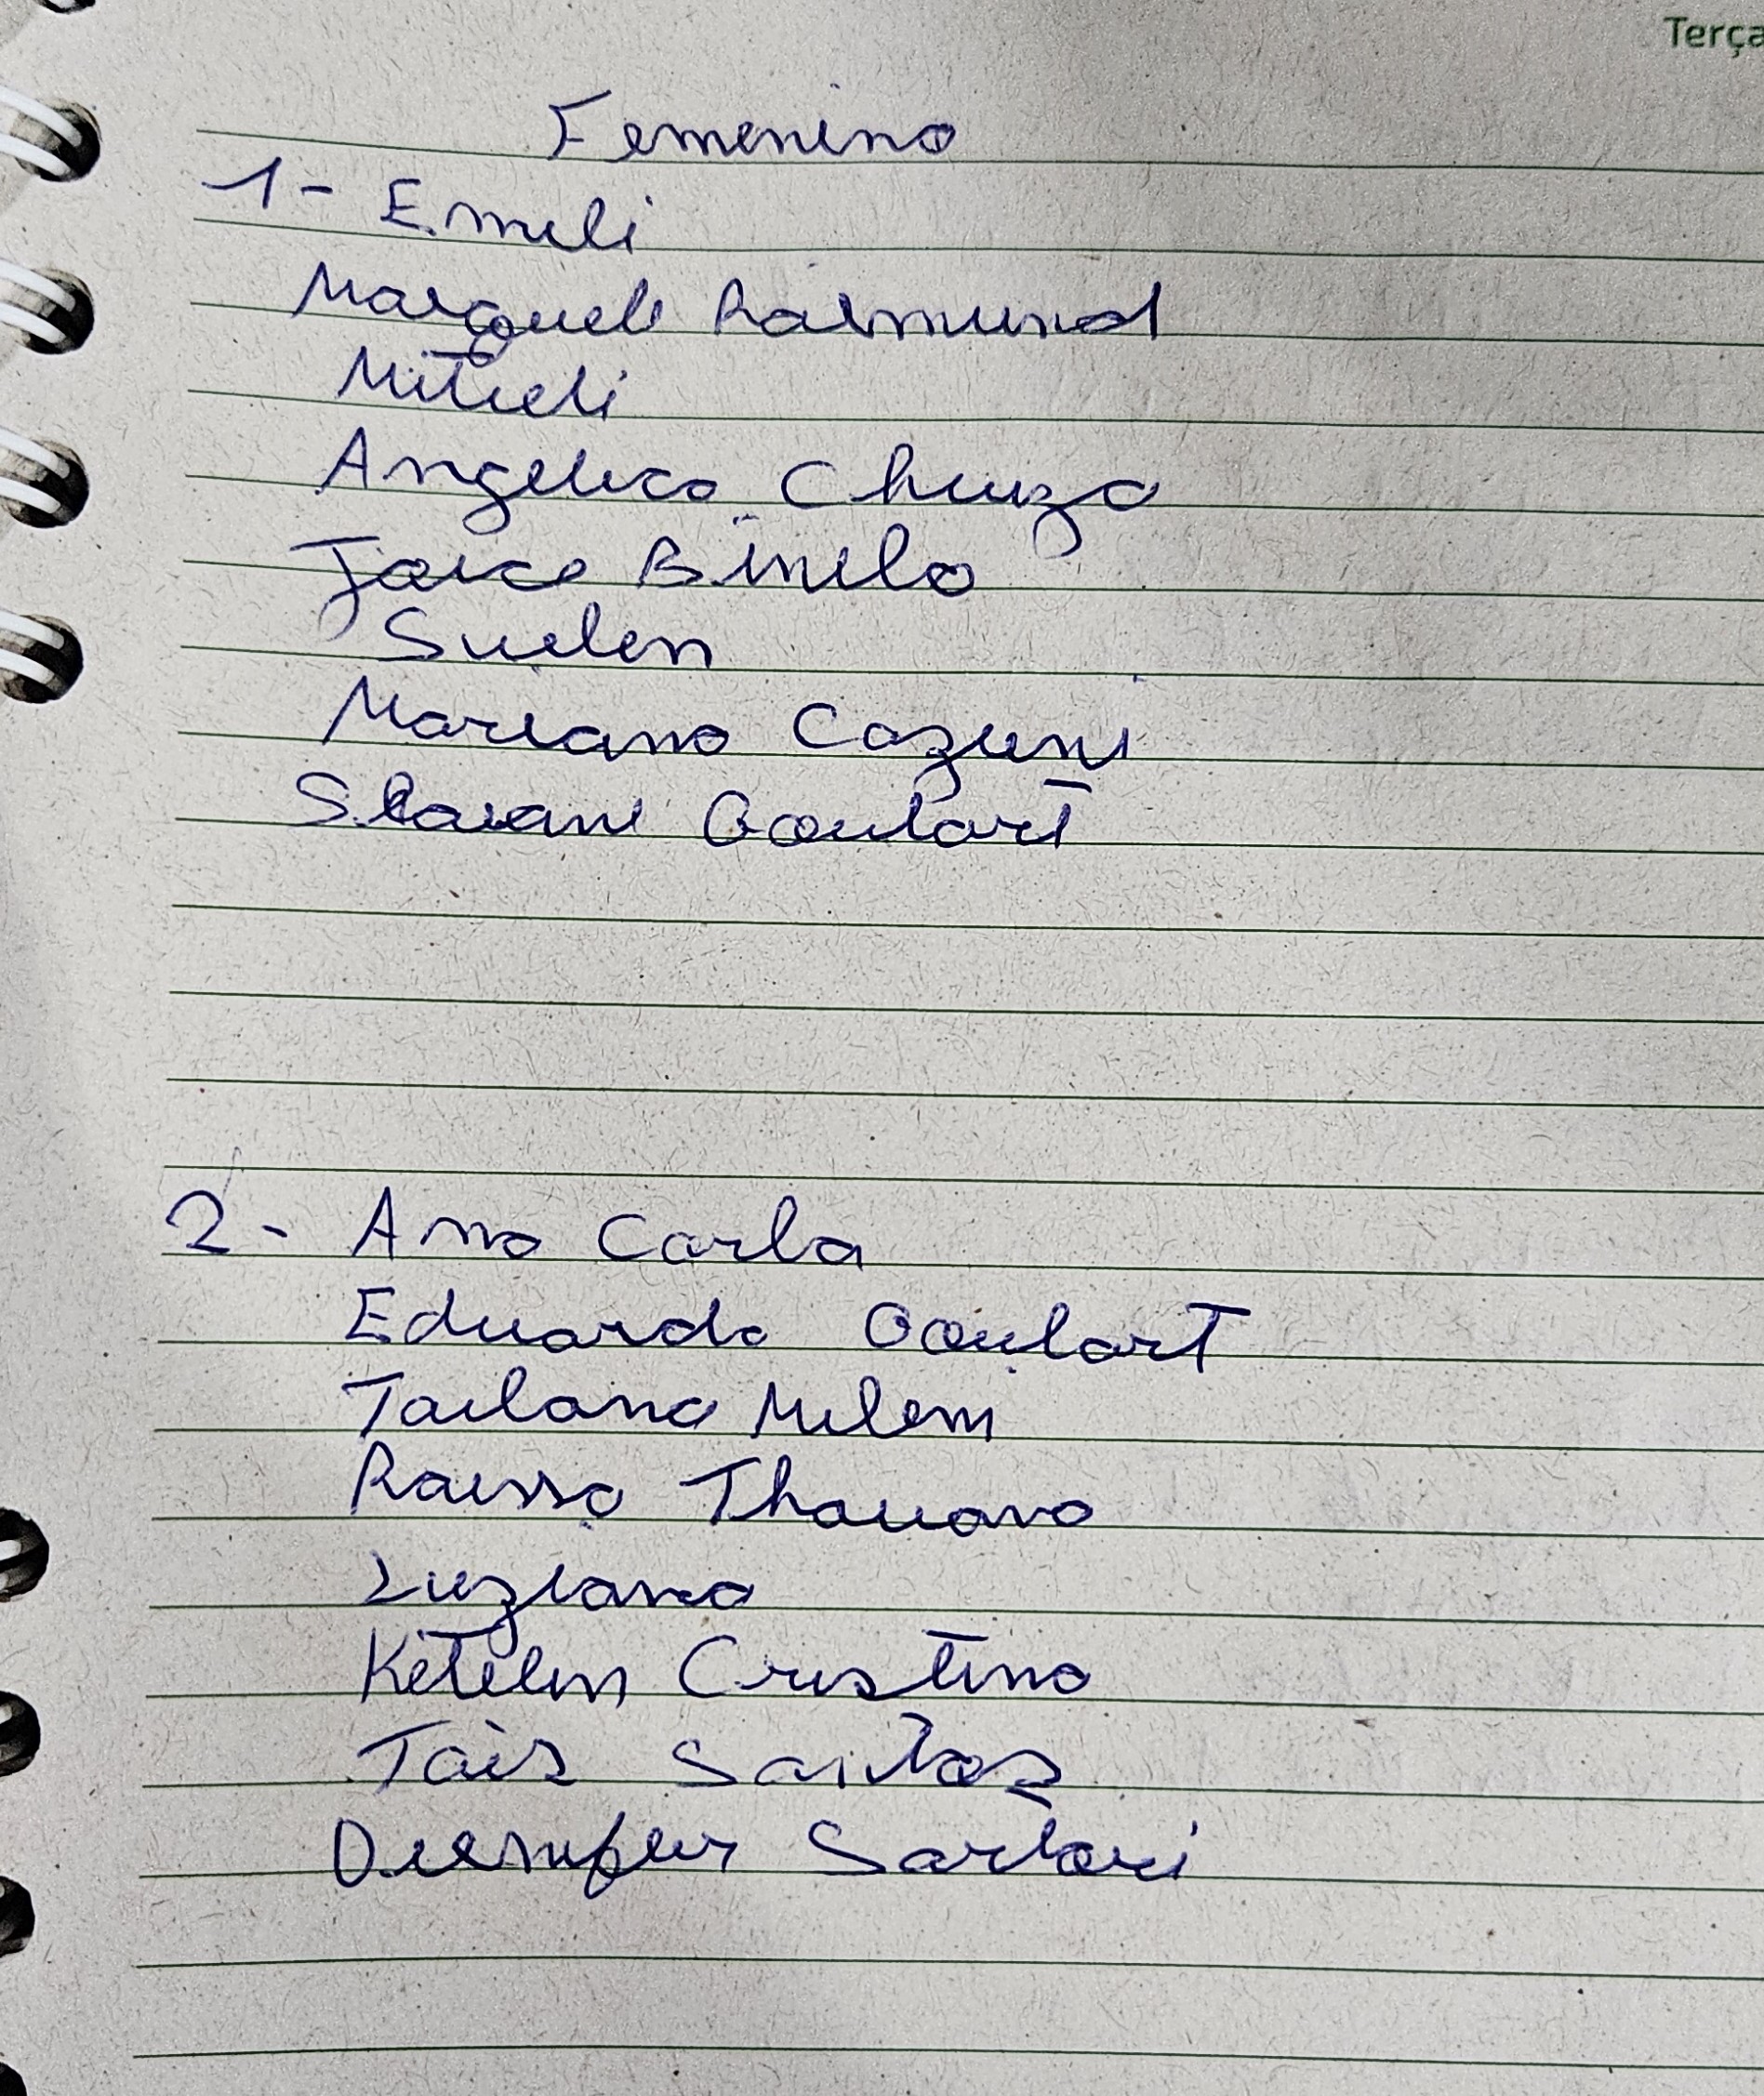 Terça
Femenino
1- Emeli
Marqueli Raimund
Mitieli
Angelica Chuza
Joice Binelo
Suelen
Mariana Cazuni
Goulart
2- Ana Carla
Eduarda Goulart
Tailana Milem
Raissa Thauana
Luziana
Ketelen Cristina
Tais Santos
Dienifer Sartori